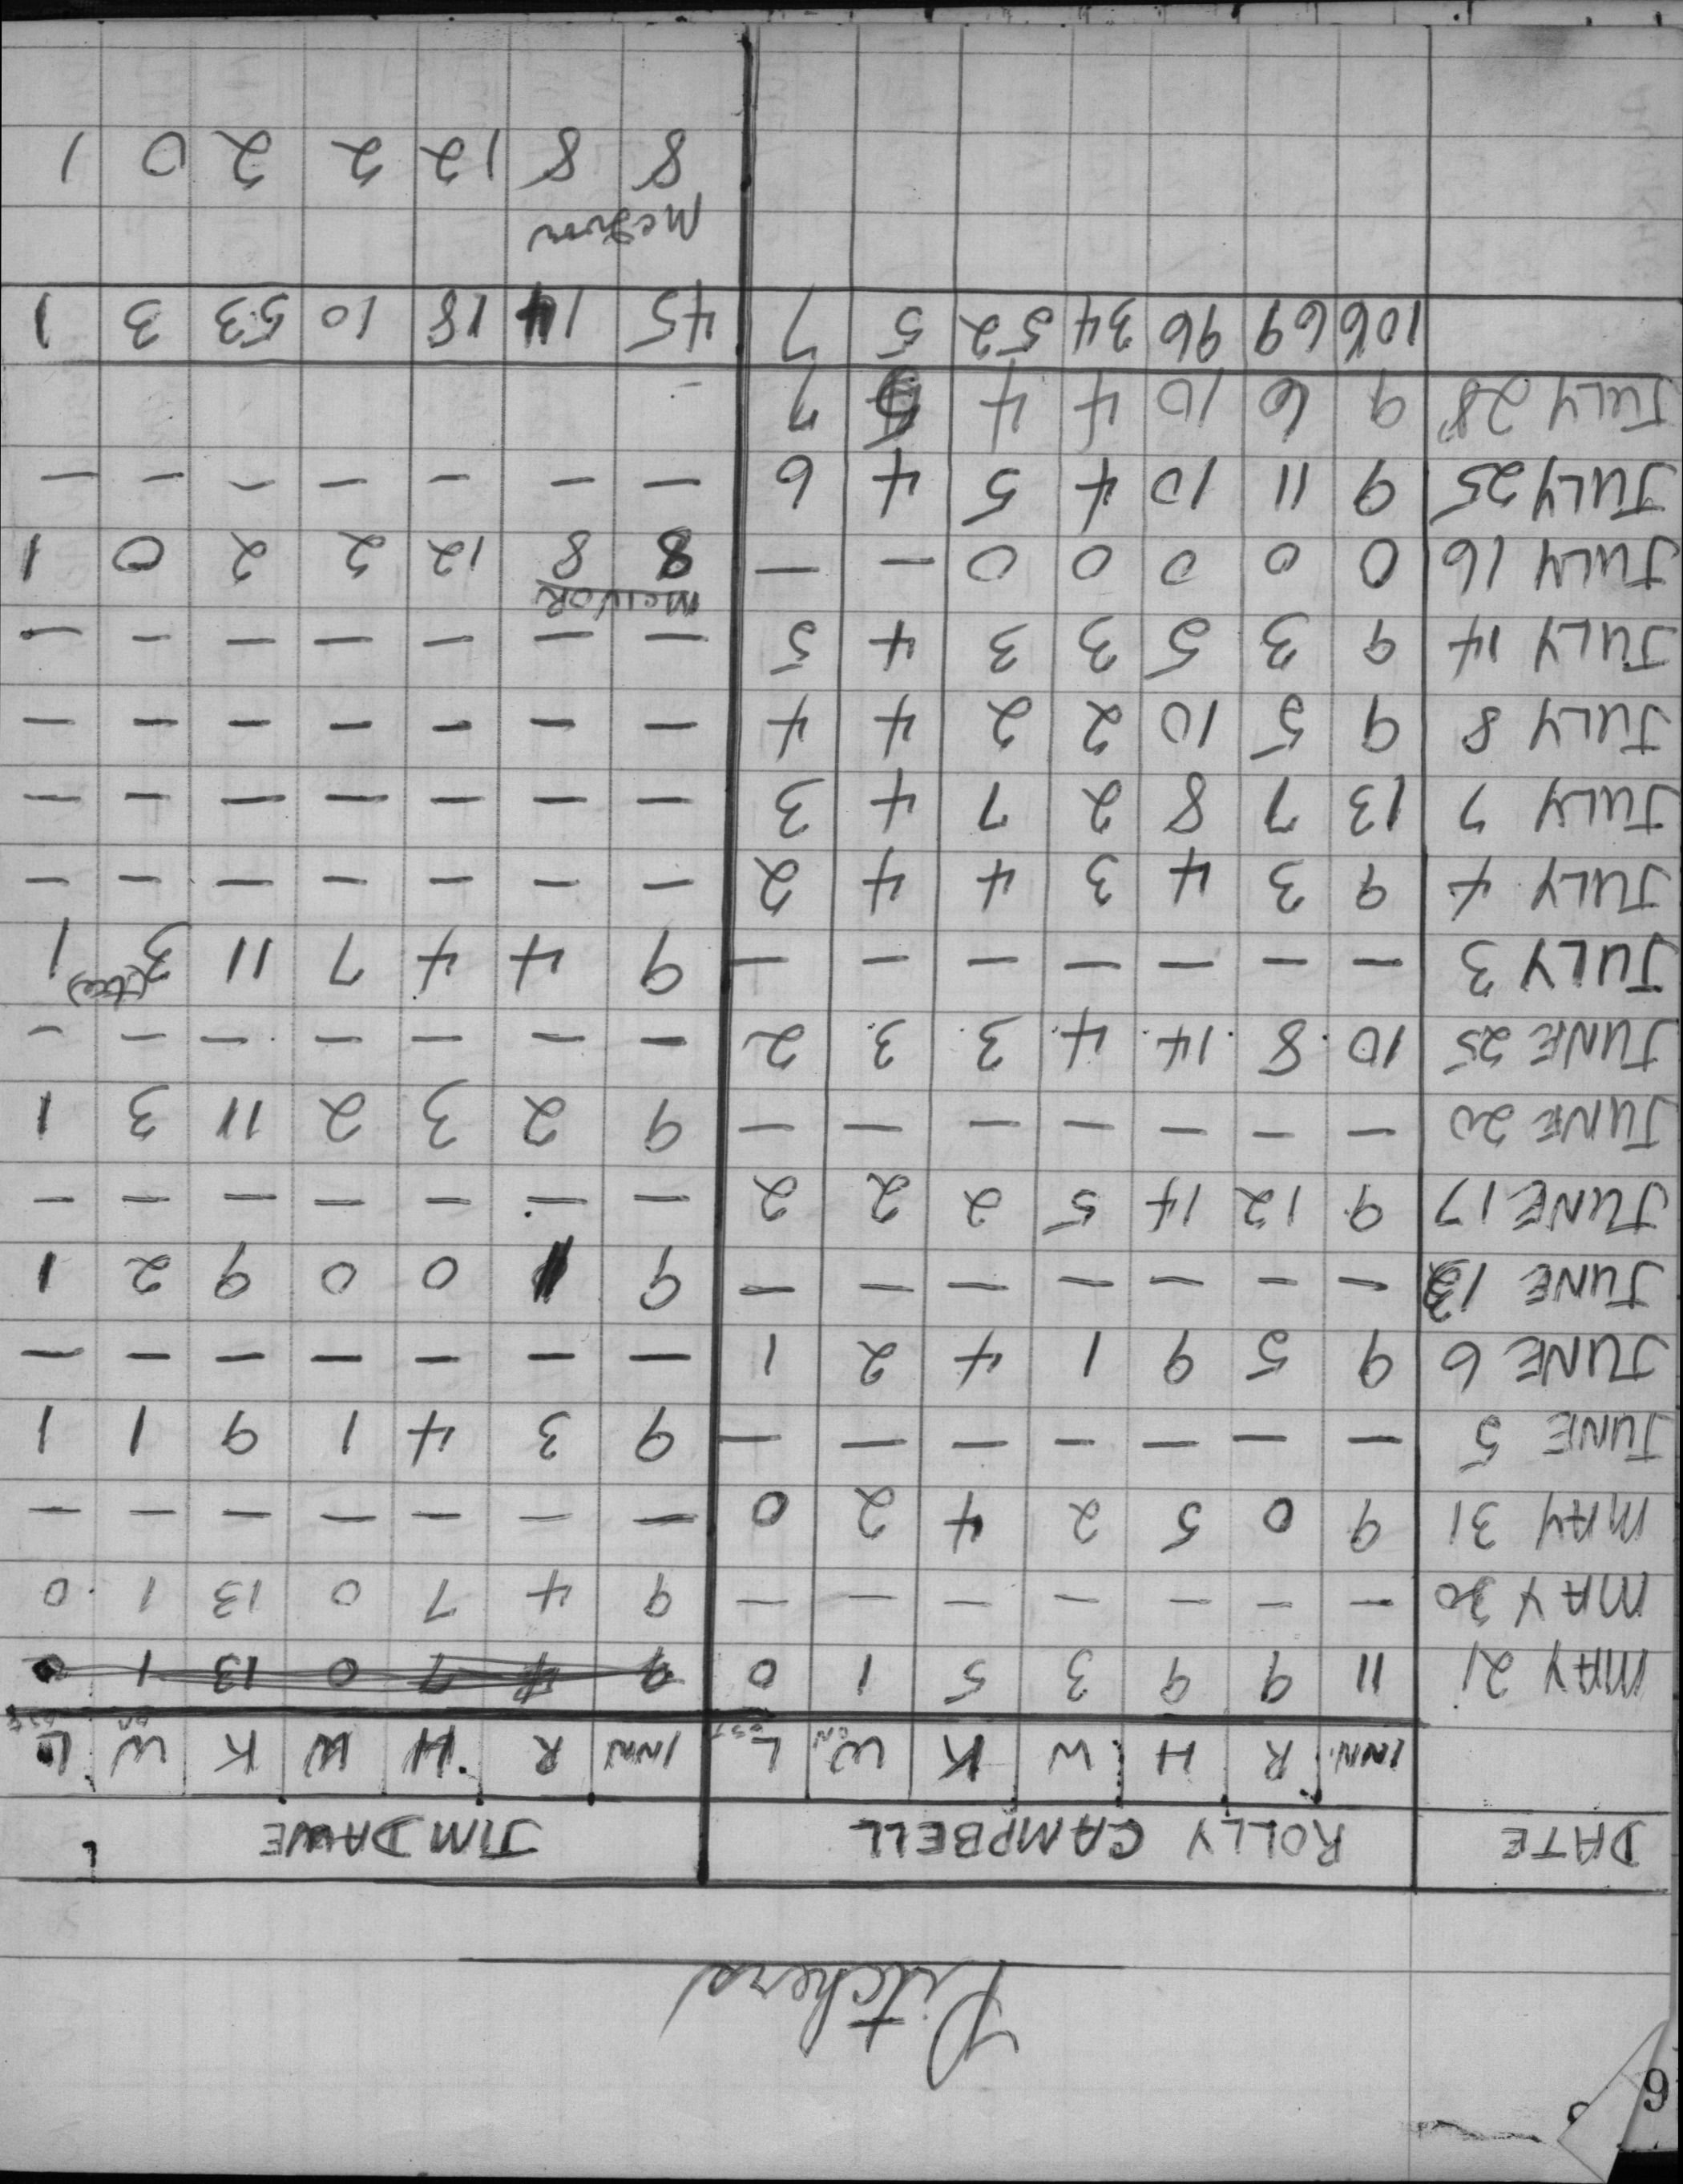 Pitchers
DATE ROLLY CAMPBELL JIM DAWE
INN. R H W K WON LOST INN R H W K WON LOST
MAY 21 11 9 9 3 5 1 0 9 4 7 0 13 1 0
MAY 30 — — — — — — — 9 4 7 0 13 1 0
MAY 31 9 0 5 2 4 2 0 — — — — — — —
JUNE 5 — — — — — — — 9 3 4 1 9 1 1
JUNE 6 9 5 9 1 4 2 1 — — — — — — —
JUNE 13 — — — — — — — 9 1 0 0 9 2 1
JUNE 17 9 12 14 5 2 2 2 — — — — — — —
JUNE 20 — — — — — — — 9 2 3 2 11 3 1
JUNE 25 10 8 14 4 3 3 2 — — — — — — —
JULY 3 — — — — — — — 9 4 4 7 11 3 (tie) 1
JULY 4 9 3 4 3 4 4 2 — — — — — — —
JULY 7 13 7 8 2 7 4 3 — — — — — — —
JULY 8 9 5 10 2 2 4 4 — — — — — — —
JULY 14 9 3 5 3 3 4 5 — — — — — — —
McIVOR
JULY 16 0 0 0 0 0 — — 8 8 12 2 2 0 1
JULY 25 9 11 10 4 5 4 6 — — — — — — —
JULY 28 9 6 10 4 4 5 7 -
106 69 96 34 52 5 7 45 14 18 10 53 3 1
8 8 12 2 2 0 1